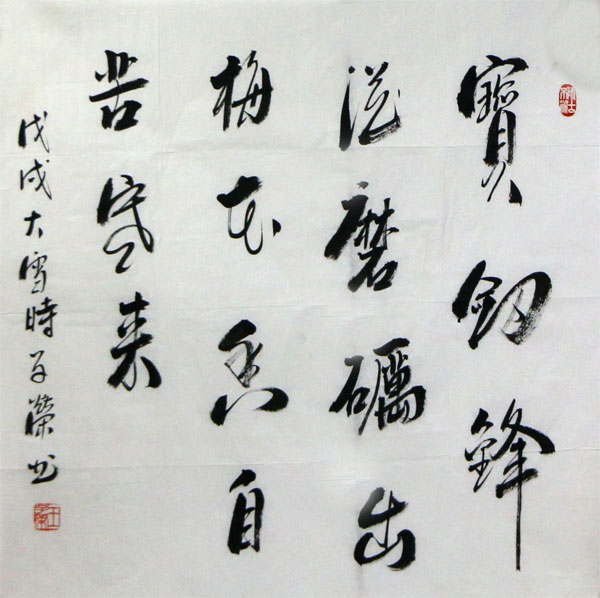 寶劍鋒
從磨礪出
梅花香自
苦寒来
戊戌大雪時子榮书